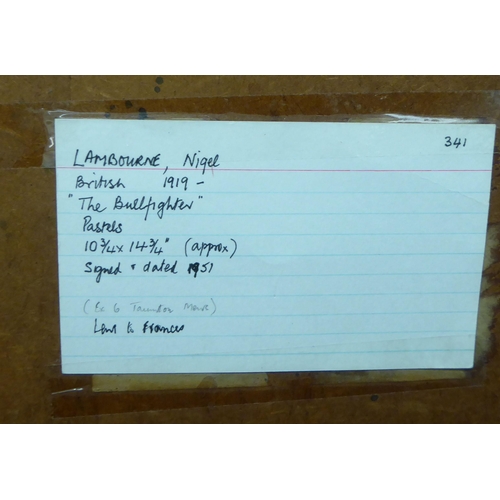 341
LAMBOURNE, Nigel
British 1919 -
"The Bullfighter"
Pastels
10 3/4 x 14 3/4" (approx)
Signed & dated 1951
(Ex 6
Lent to Frances